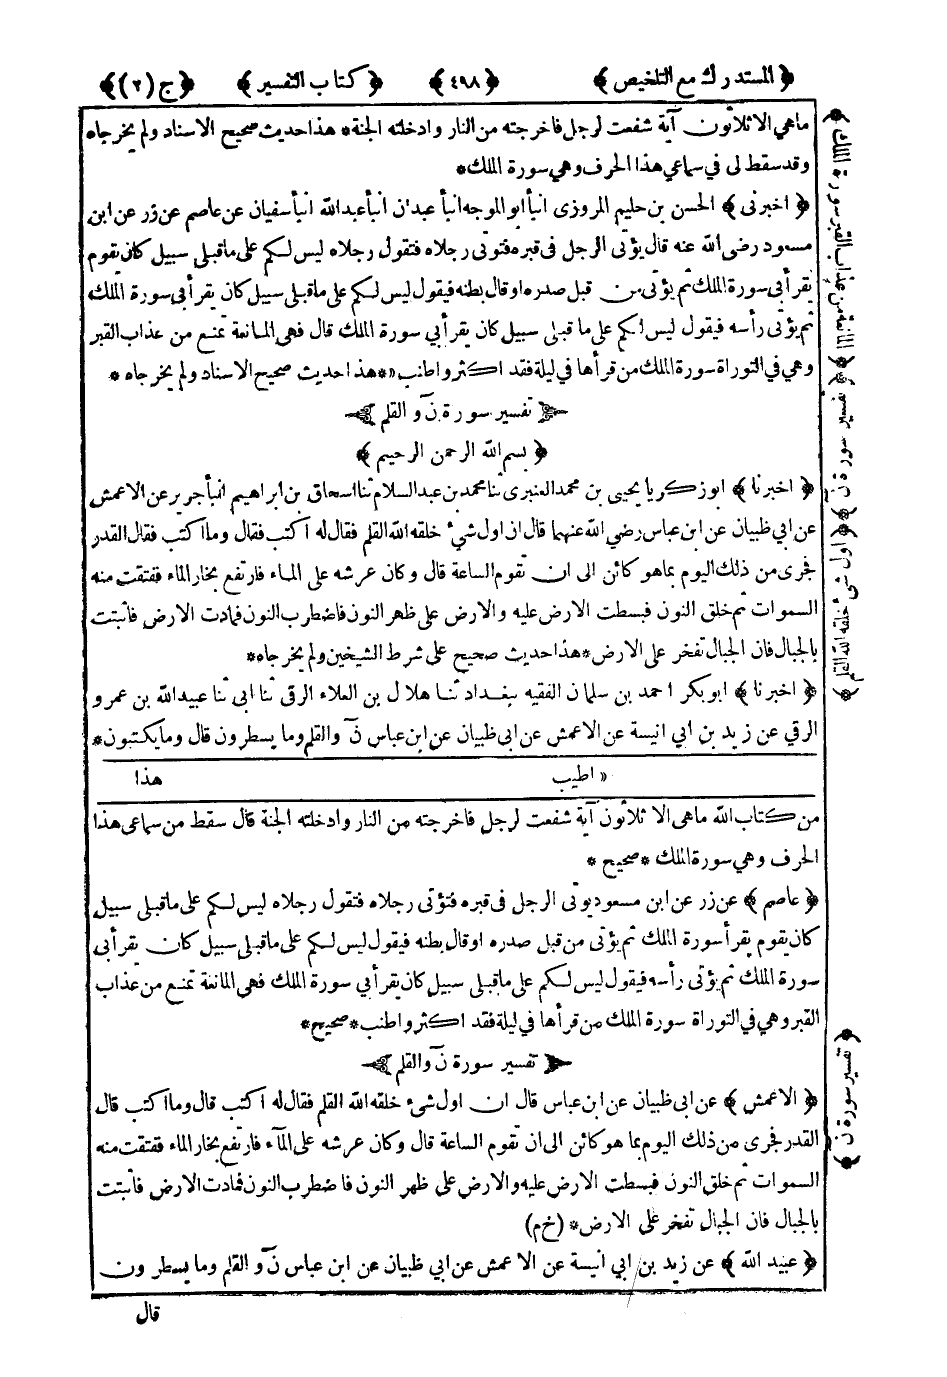 ﴿ المستدرك مع التلخيص ﴾ ﴿ ٤٩٨ ﴾ ﴿ كتاب التفسير ﴾ ﴿ ج (٢) ﴾
ماهي الا ثلاثون آية شفعت لرجل فاخرجته من النار وادخلته الجنة * هذا حديث صحيح الاسناد ولم يخرجاه
وقد سقط لى في سماعي هذا الحرف وهي سورة الملك *
﴿ اخبرنى ﴾ الحسن بن حليم المروزى انبأ ابو الموجه انبأ عبدان انبأ عبدالله انبأ سفيان عن عاصم عن زر عن ابن
مسعود رضى الله عنه قال يؤتى الرجل في قبره فتوتى رجلاه فتقول رجلاه ليس لكم على ما قبلي سبيل كان يقوم
يقرأ بي سورة الملك ثم يؤتى من قبل صدره او قال بطنه فيقول ليس لكم على ما قبلي سبيل كان يقرأ بي سورة الملك
ثم يؤتى رأسه فيقول ليس لكم على ما قبلي سبيل كان يقرأ بي سورة الملك قال فهى المانعة تمنع من عذاب القبر
وهي في التوراة سورة الملك من قرأها في ليلة فقد اكثر واطنب « * هذا حديث صحيح الاسناد ولم يخرجاه *
تفسير سورة نٓ و القلم
﴿ بسم الله الرحمن الرحيم ﴾
﴿ اخبرنا ﴾ ابو زكريا يحيى بن محمد العنبرى ثنا محمد بن عبد السلام ثنا اسحاق بن ابراهيم انبأ جرير عن الاعمش
عن ابي ظبيان عن ابن عباس رضي الله عنهما قال ان اول شئ خلقه الله القلم فقال له اكتب فقال وما اكتب فقال القدر
فجرى من ذلك اليوم بما هو كائن الى ان تقوم الساعة قال وكان عرشه على الماء فارتفع بخار الماء ففتقت منه
السموات ثم خلق النون فبسطت الارض عليه والارض على ظهر النون فاضطرب النون فمادت الارض فاثبتت
بالجبال فان الجبال تفخر على الارض * هذا حديث صحيح على شرط الشيخين ولم يخرجاه *
﴿ اخبرنا ﴾ ابو بكر احمد بن سلمان الفقيه ببغداد ثنا هلال بن العلاء الرقى ثنا ابى ثنا عبيد الله بن عمرو
الرقي عن زيد بن ابي انيسة عن الاعمش عن ابى ظبيان عن ابن عباس نٓ والقلم وما يسطرون قال وما يكتبون *
« اطيب هذا
من كتاب الله ماهى الا ثلاثون آية شفعت لرجل فاخرجته من النار وادخلته الجنة قال سقط من سماعى هذا
الحرف وهي سورة الملك * صحيح *
﴿ عاصم ﴾ عن زر عن ابن مسعود يوتى الرجل فى قبره فتؤتى رجلاه فتقول رجلاه ليس لكم على ما قبلي سبيل
كان يقوم يقرأ سورة الملك ثم يؤتى من قبل صدره او قال بطنه فيقول ليس لكم على ما قبلي سبيل كان يقرأ بى
سورة الملك ثم يؤتى رأسه فيقول ليس لكم على ما قبلي سبيل كان يقرأ بي سورة الملك فهى المانعة تمنع من عذاب
القبر وهي في التوراة سورة الملك من قرأها في ليلة فقد اكثر واطنب * صحيح *
تفسير سورة نٓ والقلم
﴿ الاعمش ﴾ عن ابى ظبيان عن ابن عباس قال ان اول شئ خلقه الله القلم فقال له اكتب قال وما اكتب قال
القدر فجرى من ذلك اليوم بما هو كائن الى ان تقوم الساعة قال وكان عرشه على المآء فارتفع بخار الماء ففتقت منه
السموات ثم خلق النون فبسطت الارض عليه والارض على ظهر النون فاضطرب النون فمادت الارض فاثبتت
بالجبال فان الجبال تفخر على الارض * (خ م)
﴿ عبيد الله ﴾ عن زيد بن ابي انيسة عن الاعمش عن ابي ظبيان عن ابن عباس نٓ و القلم وما يسطرون
قال
﴿ المانعة من عذاب القبر سورة الملك ﴾
﴿ تفسير سورة نٓ ﴾
﴿ اول شئ خلقه الله القلم ﴾
﴿ تفسير سورة ن ﴾